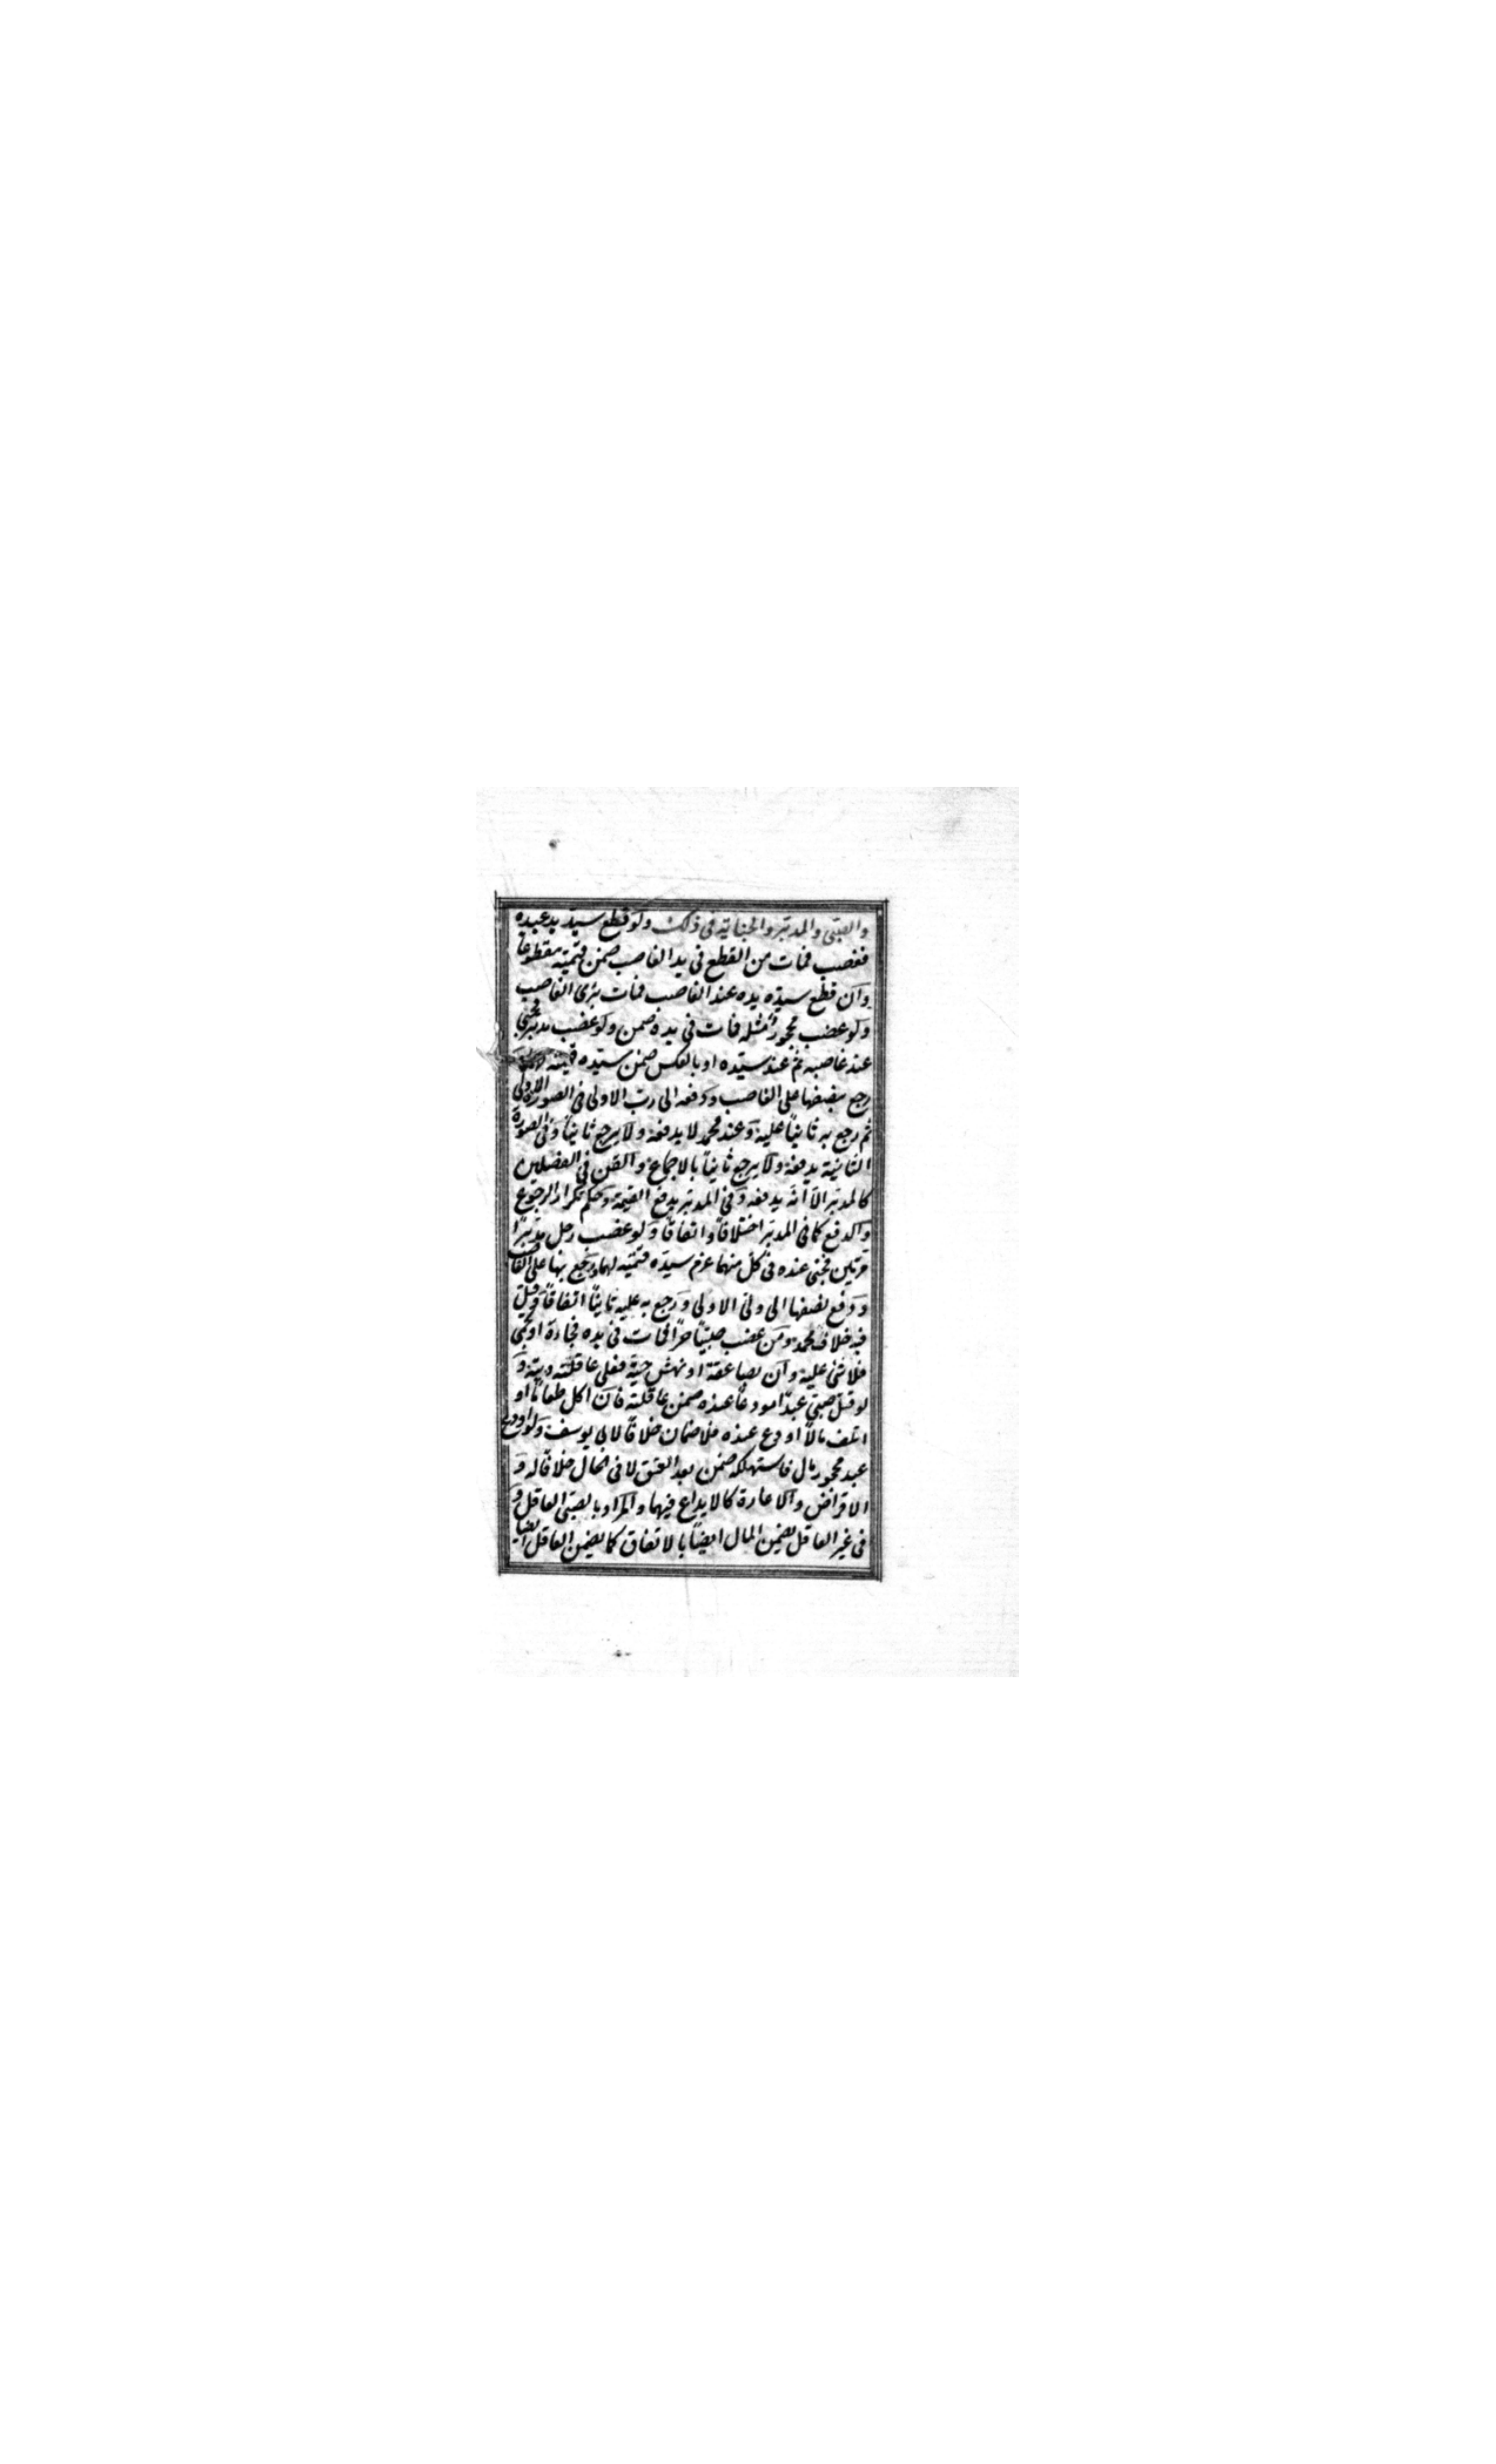 والصبي والمدبر والجناية في ذلك ولو قطع سيد يد عبده
فغصب فمات من القطع في يد الغاصب ضمن قيمته مقطوعا
وان قطع سيده يده عند الغاصب فمات برئ الغاصب
ولو غصب محجور مثله فمات في يده ضمن ولو غصب مدبر فجنى
عند غاصبه ثم عند سيده او بالعكس ضمن سيده قيمته
رجع بنصفها على الغاصب ودفعه الى رب الاولى في الصورة الاولى
ثم رجع به ثانيًا عليه وعند محمد لا يدفعه ولا يرجع ثانيًا وفي الصورة
الثانية يدفعه ولا يرجع ثانيًا بالاجماع والقن في الفصلين
كالمدبر الا انه يدفعه وفي المدبر يدفع القيمة وحكم تكرار الرجوع
والدفع كما في المدبر اختلافًا واتفاقًا ولو غصب رجل مدبرًا
مرتين فجنى عنده في كل منهما غرم سيده قيمته لهما ورجع بها على الغاصب
ودفع نصفها الى ولي الاولى ورجع به عليه ثانيًا اتفاقًا وقيل
فيه خلاف محمد ومن غصب صبيًا حرًا فمات في يده فجاءة او بحمى
فلا شئ عليه وان بصاعقة او نهش حية فعلى عاقلته ديته و
لو قتل صبي عبدًا مودعًا عنده ضمن عاقلته فان اكل طعامًا او
اتلف مالًا اودع عنده فلا ضمان خلافًا لابي يوسف ولو اودع
عبد محجور مال فاستهلكه ضمن بعد العتق لا في الحال خلافًا له و
الاقراض والاعارة كالايداع فيهما والمراد بالصبي العاقل و
في غير العاقل يضمن المال ايضًا بالاتفاق كما يضمن العاقل ايضا